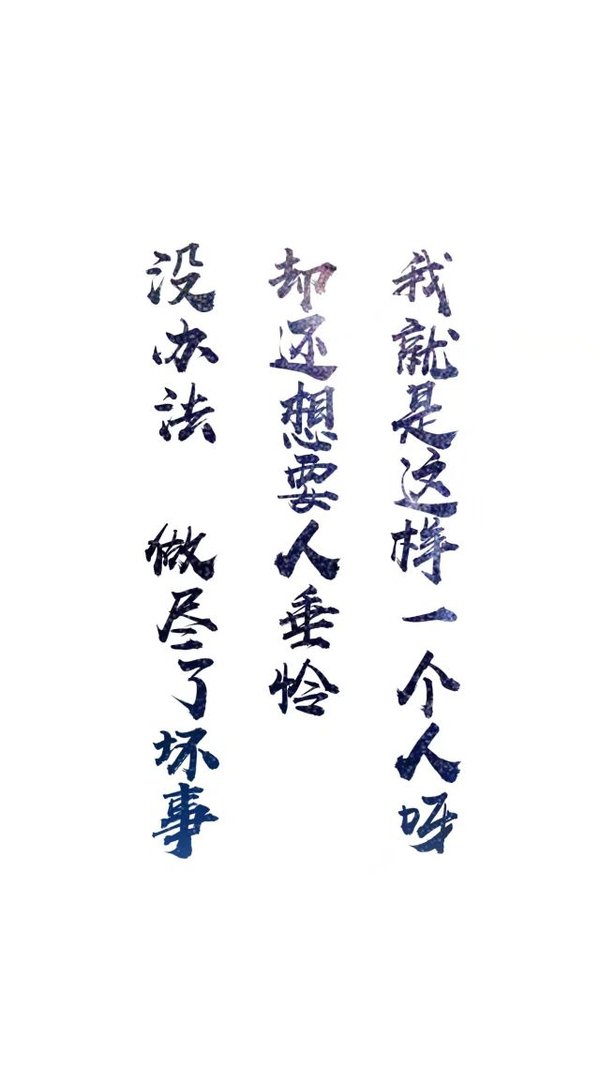 没办法 做尽了坏事
却还想要人垂怜
我就是这样一个人呀